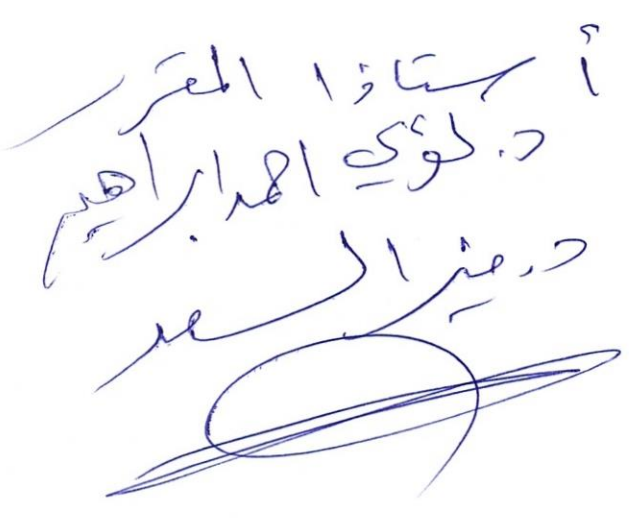 أستاذا المقرر
د. لؤي احمد ابراهيم
د. منير السعد